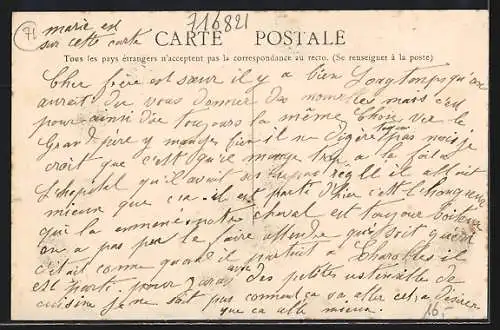 71
716821
marie est
sur cette carte
CARTE POSTALE
Tous les pays étrangers n'acceptent pas la correspondance au recto. (Se renseigner à la poste)
Cher frère est sœur il y a bien Longtemps qu'on
aurait du vous donner des nouvelles mais c'est
pour ainsi dire toujours la même chose vec le
Grand père y mange bien il ne digère toujour pas mois je
croit que c'est qu'il mange trop a la fois a
L'hopital qu'il avait ses repas reglé il allait
mieux que ca il est parti d'hier c'est
qui la emmené notre cheval est toujour boiteux
on a pas peu le faire attendre qui soit guerit
c'était comme quand il partait a Charolles il
est parti pour avec des petites ustensille de
cuisine je ne sait pas comment ca va aller cet a désirer
que ca aille mieux.
16